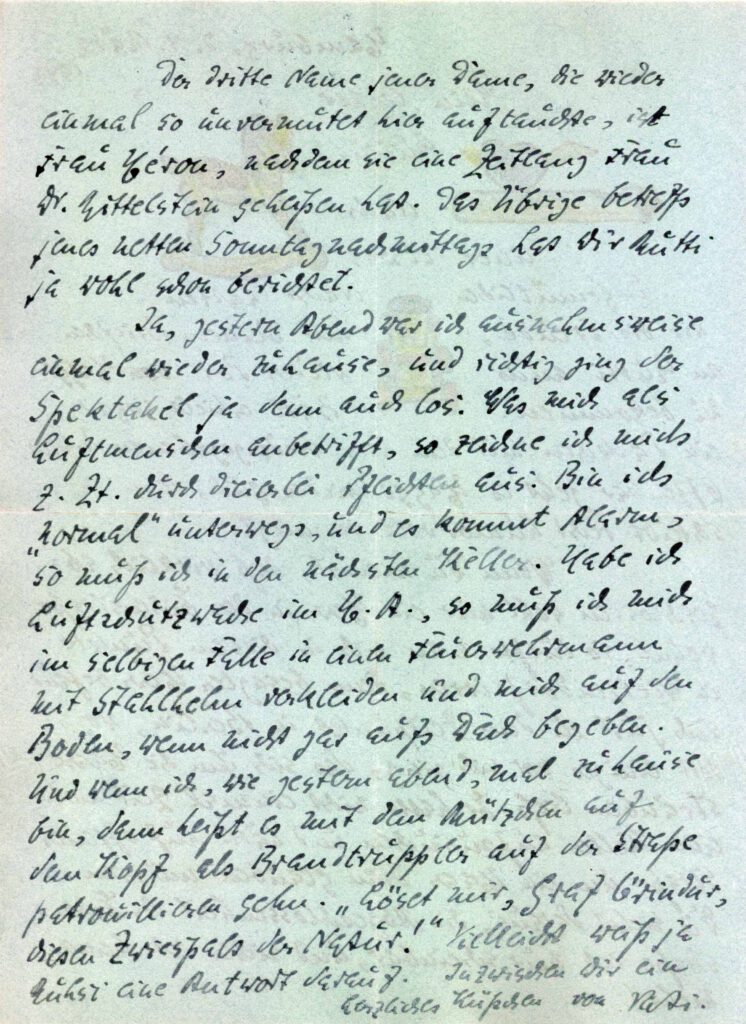 Der dritte Name jener Dame, die wieder
einmal so unvermutet hier auftauchte, ist
Frau Héron, nachdem sie eine Zeitlang Frau
Dr. Mittelstein geheißen hat. Das Übrige betreffs
jenes netten Sonntagnachmittags hat Dir Mutti
ja wohl schon berichtet.
Ja, gestern Abend war ich ausnahmsweise
einmal wieder zuhause, und richtig ging der
Spektakel ja denn auch los. Was mich als
Luftmenschen anbetrifft, so zeichne ich mich
z. Zt. durch dreierlei Pflichten aus. Bin ich
„normal“ unterwegs, und es kommt Alarm,
so muß ich in den nächsten Keller. Habe ich
Luftschutzwache im H. A., so muß ich mich
im selbigen Falle in einen Feuerwehrmann
mit Stahlhelm verkleiden und mich auf den
Boden, wenn nicht gar aufs Dach begeben.
Und wenn ich, wie gestern abend, mal zuhause
bin, dann heißt es mit dem Mützchen auf
dem Kopf als Brandtruppler auf der Straße
patrouillieren gehn. „Löset mir, Graf Örindur,
diesen Zwiespalt der Natur!“ Vielleicht weiß ja
eine Antwort darauf. Inzwischen Dir ein
herzliches Küßchen von Vati.